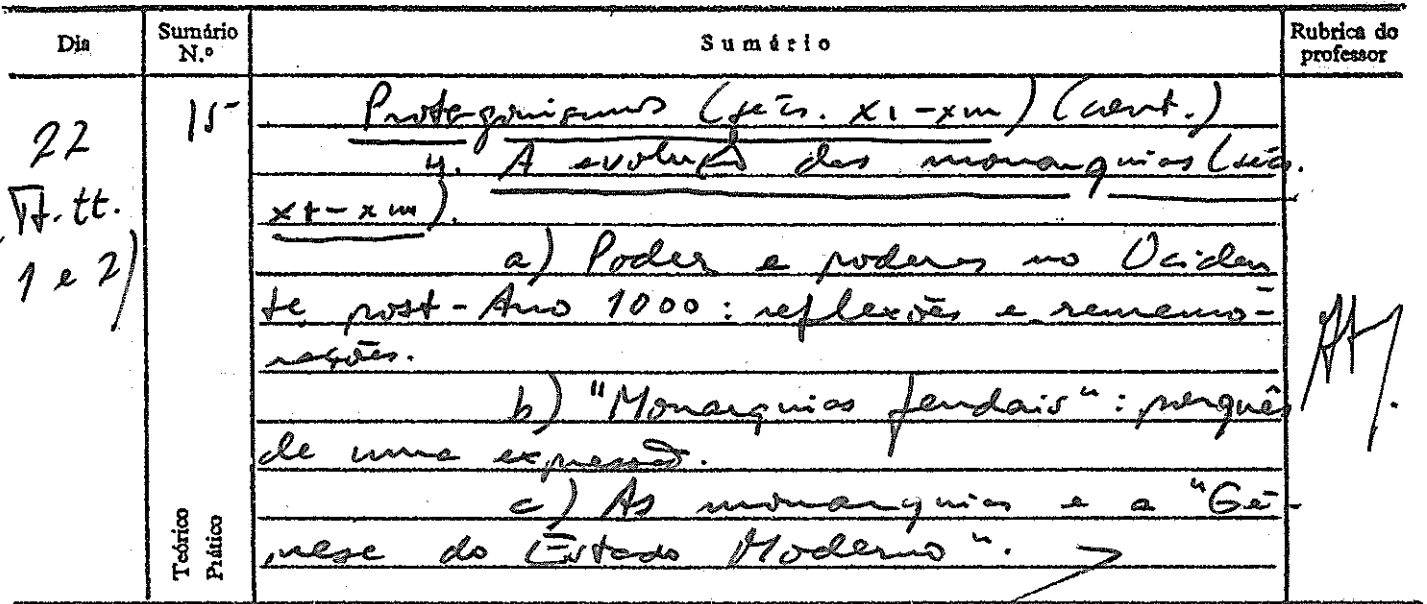 Dia Sumário N.º Sumário Rubrica do professor
22 15 Protagonismos (sécs. XI-XIII) (cont.)
4. A evolução das monarquias (sécs.
tt. XI-XIII).
1 e 2) a) Poder e poderes no Ociden
te post-Ano 1000: reflexões e rememo-
rações.
b) "Monarquias feudais": porquê
de uma expressão.
c) As monarquias e a "Gé-
nese do Estado Moderno".
Teórico
Prático